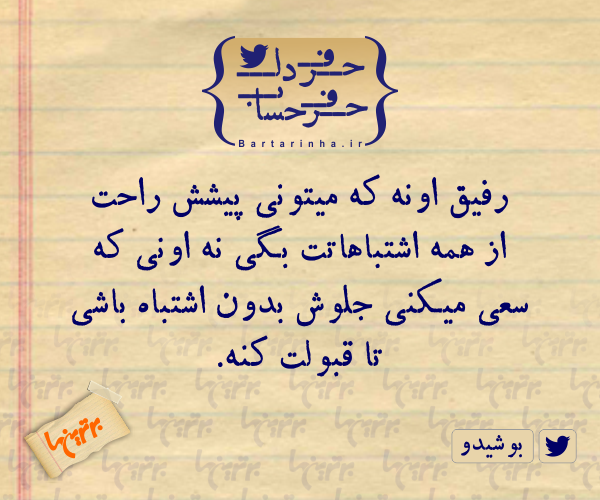 حرف دل
حرف حساب
Bartarinha.ir
رفیق اونه که میتونی پیشش راحت
از همه اشتباهاتت بگی نه اونی که
سعی میکنی جلوش بدون اشتباه باشی
تا قبولت کنه.
برترین‌ها
بوشیدو